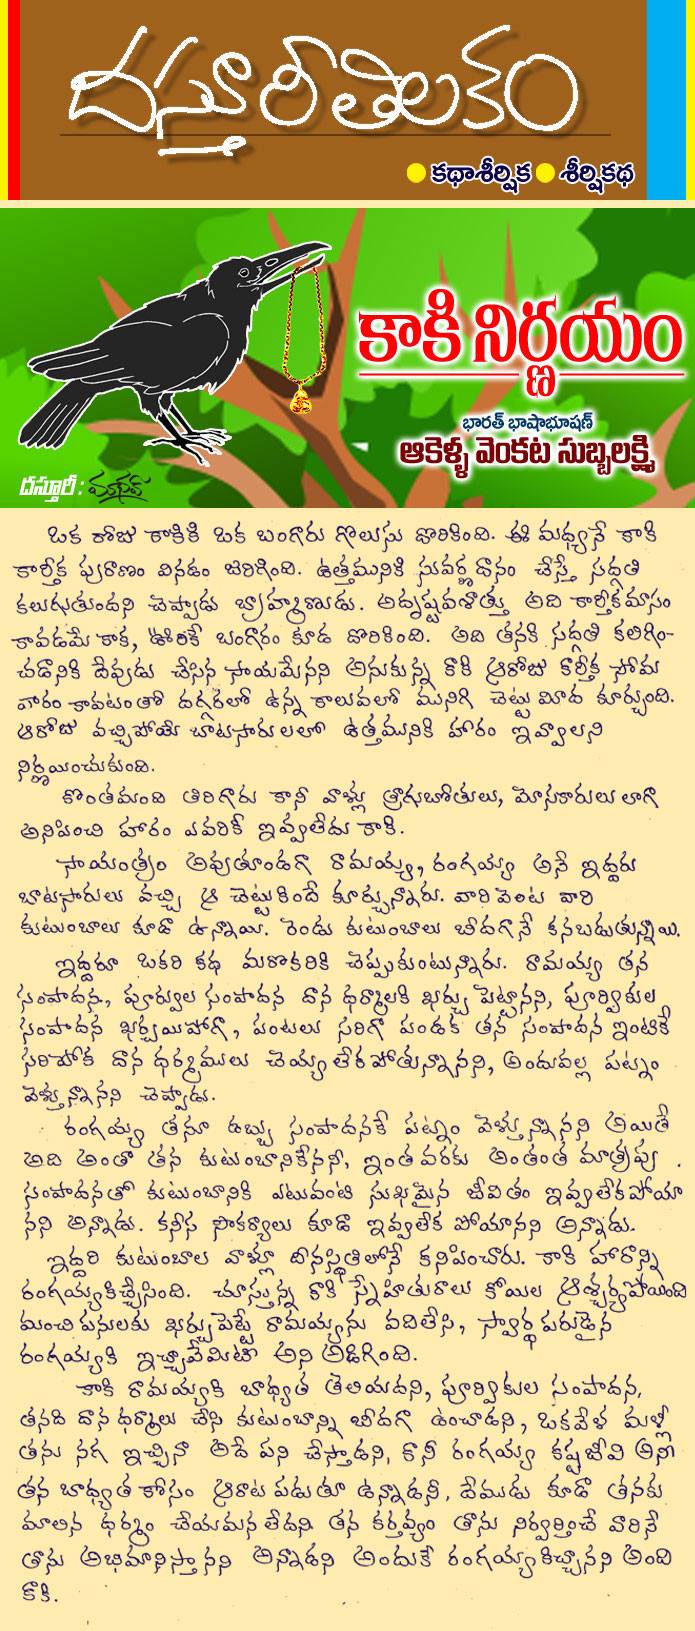 దస్తూరీ తిలకం
● కథాశీర్షిక ● శీర్షికథ
కాకి నిర్ణయం
భారత్ భాషాభూషణ్
ఆకెళ్ళ వెంకట సుబ్బలక్ష్మి
దస్తూరీ : మానస్
ఒక రోజు కాకికి ఒక బంగారు గొలుసు దొరికింది. ఈ మధ్యనే కాకి
కార్తీక పురాణం వినడం జరిగింది. ఉత్తమునికి సువర్ణదానం చేస్తే సద్గతి
కలుగుతుందని చెప్పాడు బ్రాహ్మణుడు. అదృష్టవశాత్తు అది కార్తీకమాసం
కావడమే కాక, ఊరికే బంగారం కూడ దొరికింది. అది తనకి సద్గతి కలిగిం-
చడానికి దేవుడు చేసిన సాయమేనని అనుకున్న కాకి ఆరోజు కార్తీక సోమ
వారం కావటంతో దగ్గరలో ఉన్న కాలువలో మునిగి చెట్టు మీద కూర్చుంది.
ఆరోజు వచ్చిపోయే బాటసారులలో ఉత్తమునికి హారం ఇవ్వాలని
నిర్ణయించుకుంది.
కొంతమంది తిరిగారు కానీ వాళ్లు త్రాగుబోతులు, మోసకారులులాగా
అనిపించి హారం ఎవరికీ ఇవ్వలేదు కాకి.
సాయంత్రం అవుతూండగా రామయ్య, రంగయ్య అనే ఇద్దరు
బాటసారులు వచ్చి ఆ చెట్టుకిందే కూర్చున్నారు. వారి వెంట వారి
కుటుంబాలు కూడా ఉన్నాయి. రెండు కుటుంబాలు బీదగానే కనబడుతున్నాయి.
ఇద్దరూ ఒకరి కథ మరొకరికి చెప్పుకుంటున్నారు. రామయ్య తన
సంపాదన, పూర్వుల సంపాదన దాన ధర్మాలకి ఖర్చు పెట్టానని, పూర్వికుల
సంపాదన ఖర్చయిపోగా, పంటలు సరిగా పండక తన సంపాదన ఇంటికే
సరిపోక దాన ధర్మములు చెయ్యలేకపోతున్నానని, అందువల్ల పట్నం
వెళ్తున్నానని చెప్పాడు.
రంగయ్య తనూ డబ్బు సంపాదనకే పట్నం వెళ్తున్నానని అయితే
అది అంతా తన కుటుంబానికేనని, ఇంతవరకు అంతంత మాత్రపు
సంపాదనతో కుటుంబానికి ఎటువంటి సుఖమైన జీవితం ఇవ్వలేకపోయా
నని అన్నాడు. కనీస సౌకర్యాలు కూడా ఇవ్వలేక పోయానని అన్నాడు.
ఇద్దరి కుటుంబాల వాళ్లూ దీనస్థితిలోనే కనిపించారు. కాకి హారాన్ని
రంగయ్యకిచ్చేసింది. చూస్తున్న కాకి స్నేహితురాలు కోయిల ఆశ్చర్యపోయింది
మంచి పనులకు ఖర్చుపెట్టే రామయ్యను వదిలేసి, స్వార్థపరుడైన
రంగయ్యకి ఇచ్చావేమిటి అని అడిగింది.
కాకి రామయ్యకి బాధ్యత తెలియదని, పూర్వికుల సంపాదన,
తనది దాన ధర్మాలు చేసి కుటుంబాన్ని బీదగా ఉంచాడని, ఒకవేళ మళ్లీ
తను నగ ఇచ్చినా అదే పని చేస్తాడని, కానీ రంగయ్య కష్టజీవి అని
తన బాధ్యత కోసం ఆరాట పడుతూ ఉన్నాడనీ, దేముడు కూడా తనకు
మాలిన ధర్మం చేయమనలేదని తన కర్తవ్యం తాను నిర్వర్తించే వారినే
తాను అభిమానిస్తానని అన్నాడని అందుకే రంగయ్యకిచ్చానని అంది
కాకి.